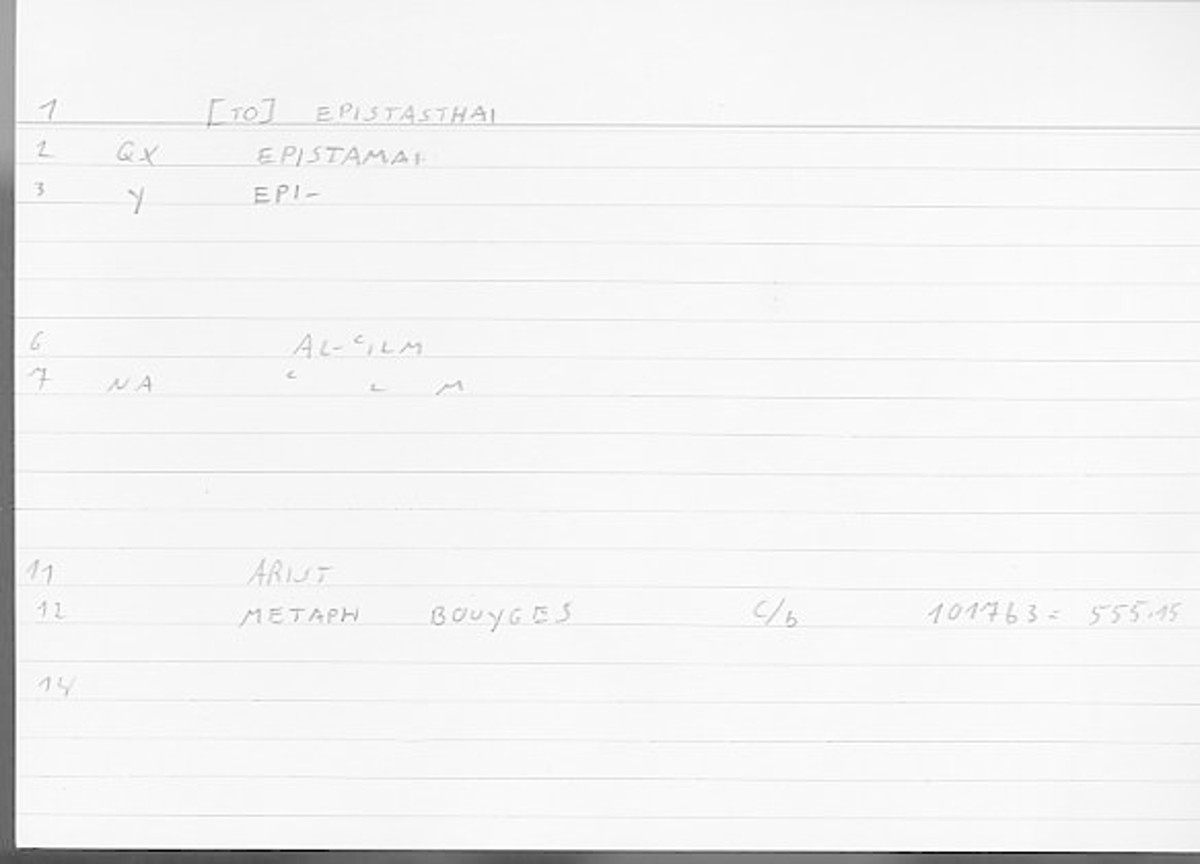 1 [TO] EPISTASTHAI
2 QX EPISTAMAI
3 Y EPI-
6 AL-ʿILM
7 NA ʿ L M
11 ARIST
12 METAPH BOUYGES C/b 101763= 555.15
14